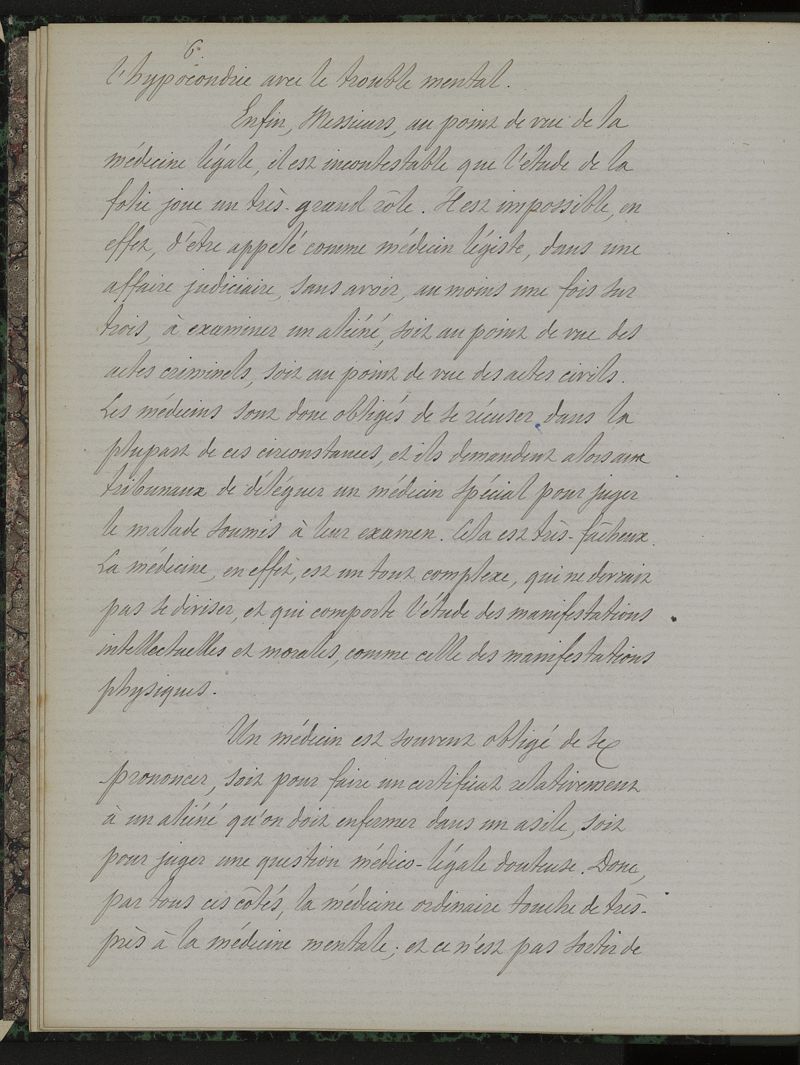 6
l'hypocondrie avec le trouble mental.
Enfin, Messieurs, au point de vue de la
médecine légale, il est incontestable que l'étude de la
folie joue un très-grand rôle. Il est impossible, en
effet, d'être appelé comme médecin légiste, dans une
affaire judiciaire, sans avoir, au moins une fois sur
trois, à examiner un aliéné, soit au point de vue des
actes criminels, soit au point de vue des actes civils.
Les médecins sont donc obligés de se récuser dans la
plupart de ces circonstances, et ils demandent alors aux
tribunaux de déléguer un médecin spécial pour juger
le malade soumis à leur examen. Cela est très-fâcheux.
La médecine, en effet, est un tout complexe, qui ne devrait
pas se diviser, et qui comporte l'étude des manifestations
intellectuelles et morales, comme celle des manifestations
physiques.
Un médecin est souvent obligé de se
prononcer, soit pour faire un certificat relativement
à un aliéné qu'on doit enfermer dans un asile, soit
pour juger une question médico-légale douteuse. Donc,
par tous ces côtés, la médecine ordinaire touche de très-
près à la médecine mentale; et ce n'est pas sortir de